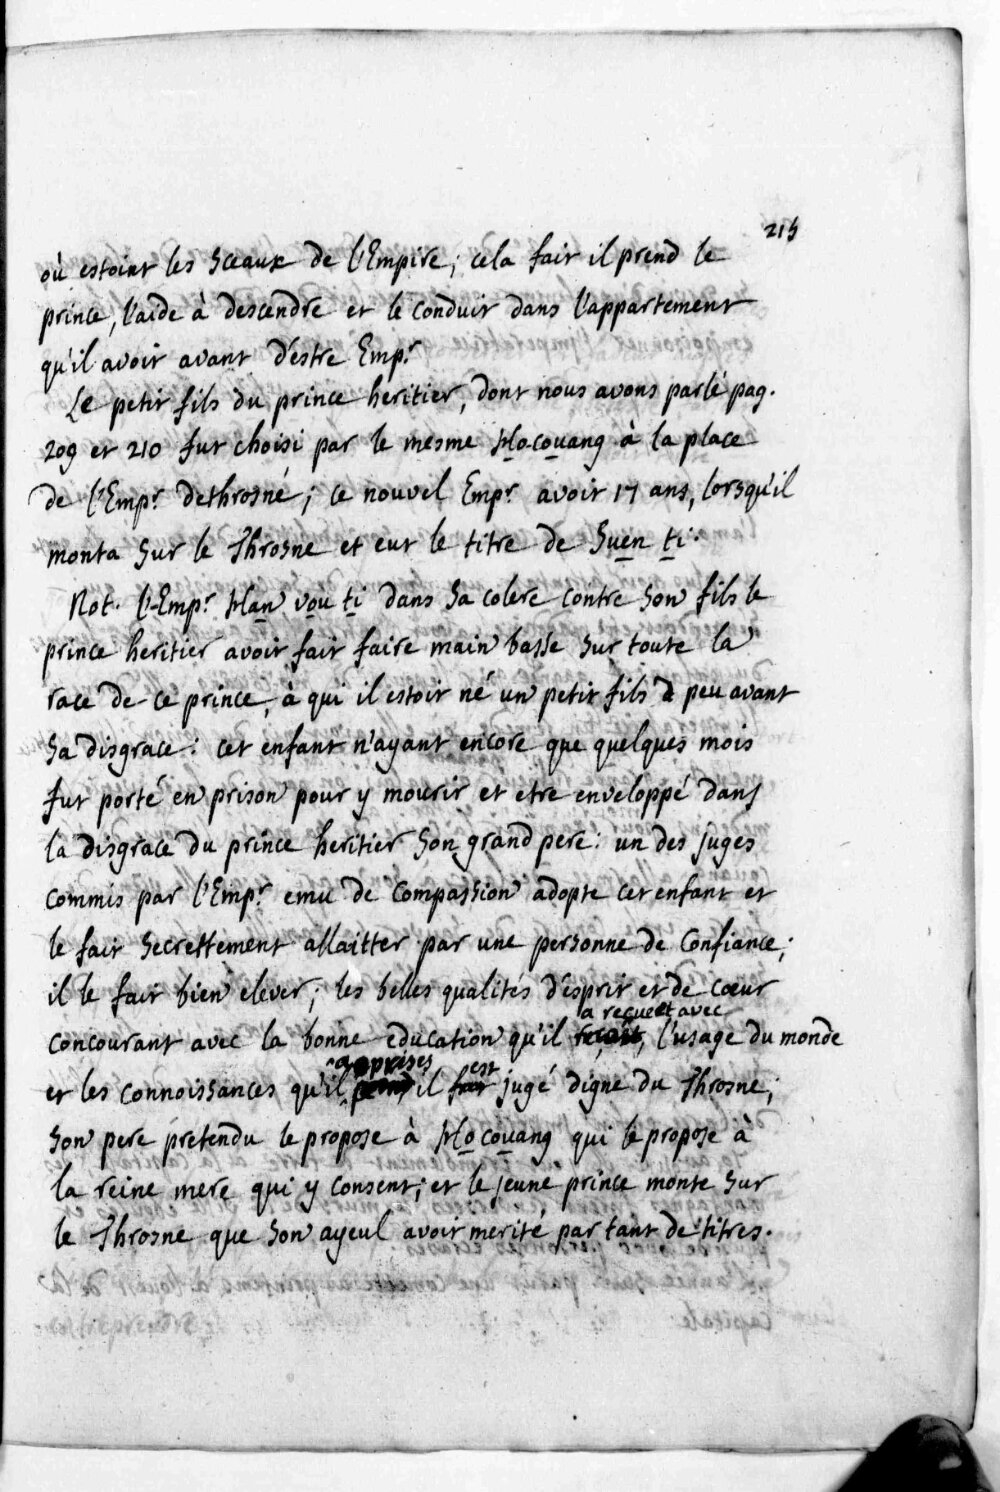 215
où estoint les sceaux de l'Empire; cela fait il prend le
prince, l'aide à descendre et le conduit dans l'appartement
qu'il avoit avant d'estre Empr
Le petit fils du prince heritier, dont nous avons parlé pag.
209 et 210 fut choisi par le mesme Ho couang à la place
de l'Empr dethrosné; ce nouvel Empr avoit 17 ans, lorsqu'il
monta sur le Throsne et eut le titre de Suen ti.
Not. l'Empr Han vou ti dans sa colere contre son fils le
prince heritier avoit fait faire main basse sur toute la
race de ce prince, à qui il estoit né un petit fils peu avant
sa disgrace: cet enfant n'ayant encore que quelques mois
fut porté en prison pour y mourir et etre enveloppé dans
la disgrace du prince heritier son grand pere: un des juges
commis par l'Empr emu de compassion adopte cet enfant et
le fait secrettement allaitter par une personne de confiance;
il le fait bien elever; les belles qualités d'esprit et de cœur
a receue et avec
concourant avec la bonne education qu'il reçoit, l'usage du monde
apprises est
et les connoissances qu'il prend il fut jugé digne du Throsne;
son pere pretendu le propose à Ho couang qui le propose à
la reine mere qui y consent; et le jeune prince monte sur
le Throsne que son ayeul avoit merité par tant de titres.